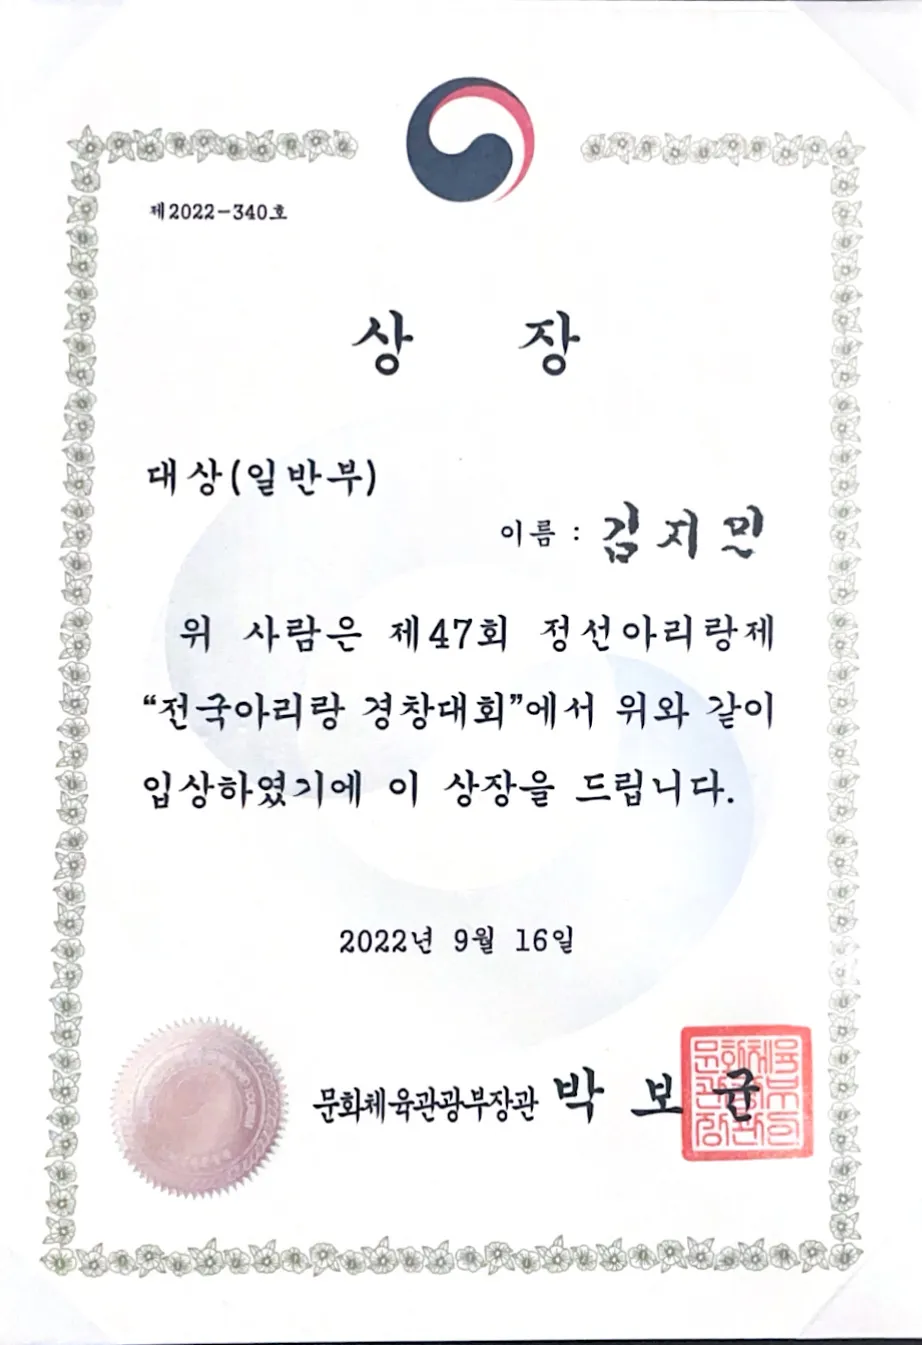 제2022-340호
상 장
대상(일반부)
이름 : 김지민
위 사람은 제47회 정선아리랑제
“전국아리랑 경창대회”에서 위와 같이
입상하였기에 이 상장을 드립니다.
2022년 9월 16일
문화체육관광부장관 박보균